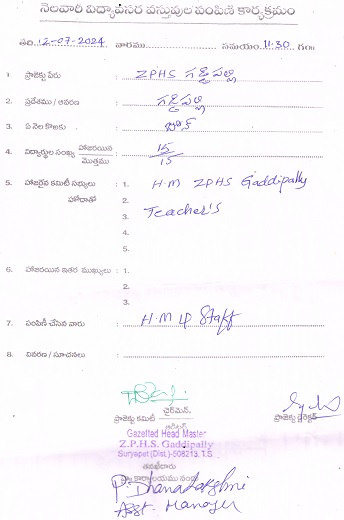 నెలవారీ విద్యావసర వస్తువుల పంపిణీ కార్యక్రమం
తేది 12-07-2024 వారము సమయం 11:30 గం॥
1. ప్రాజెక్టు పేరు : ZPHS గడ్డిపల్లి
2. ప్రదేశము / ఆవరణ : గడ్డిపల్లి
3. ఏ నెల కొఱకు : జూన్
4. విద్యార్థుల సంఖ్య హాజరయిన / మొత్తము : 15/15
5. హాజరైన కమిటీ సభ్యులు : 1. H.M ZPHS Gaddipally
హోదాతో 2.
3. Teacher's
4.
5.
6. హాజరయిన ఇతర ముఖ్యులు : 1.
2.
3.
7. పంపిణీ చేసిన వారు : H.M Staff
8. వివరణ / సూచనలు :
ప్రాజెక్టు కమిటీ ఛైర్మెన్. ప్రాజెక్టు డైరెక్టర్
Gazetted Head Master
Z.P.H.S. Gaddipally
Suryapet (Dist.)-508213. T.S.
తనఖీదారు
P. Dhanalakshmi
Asst Manager